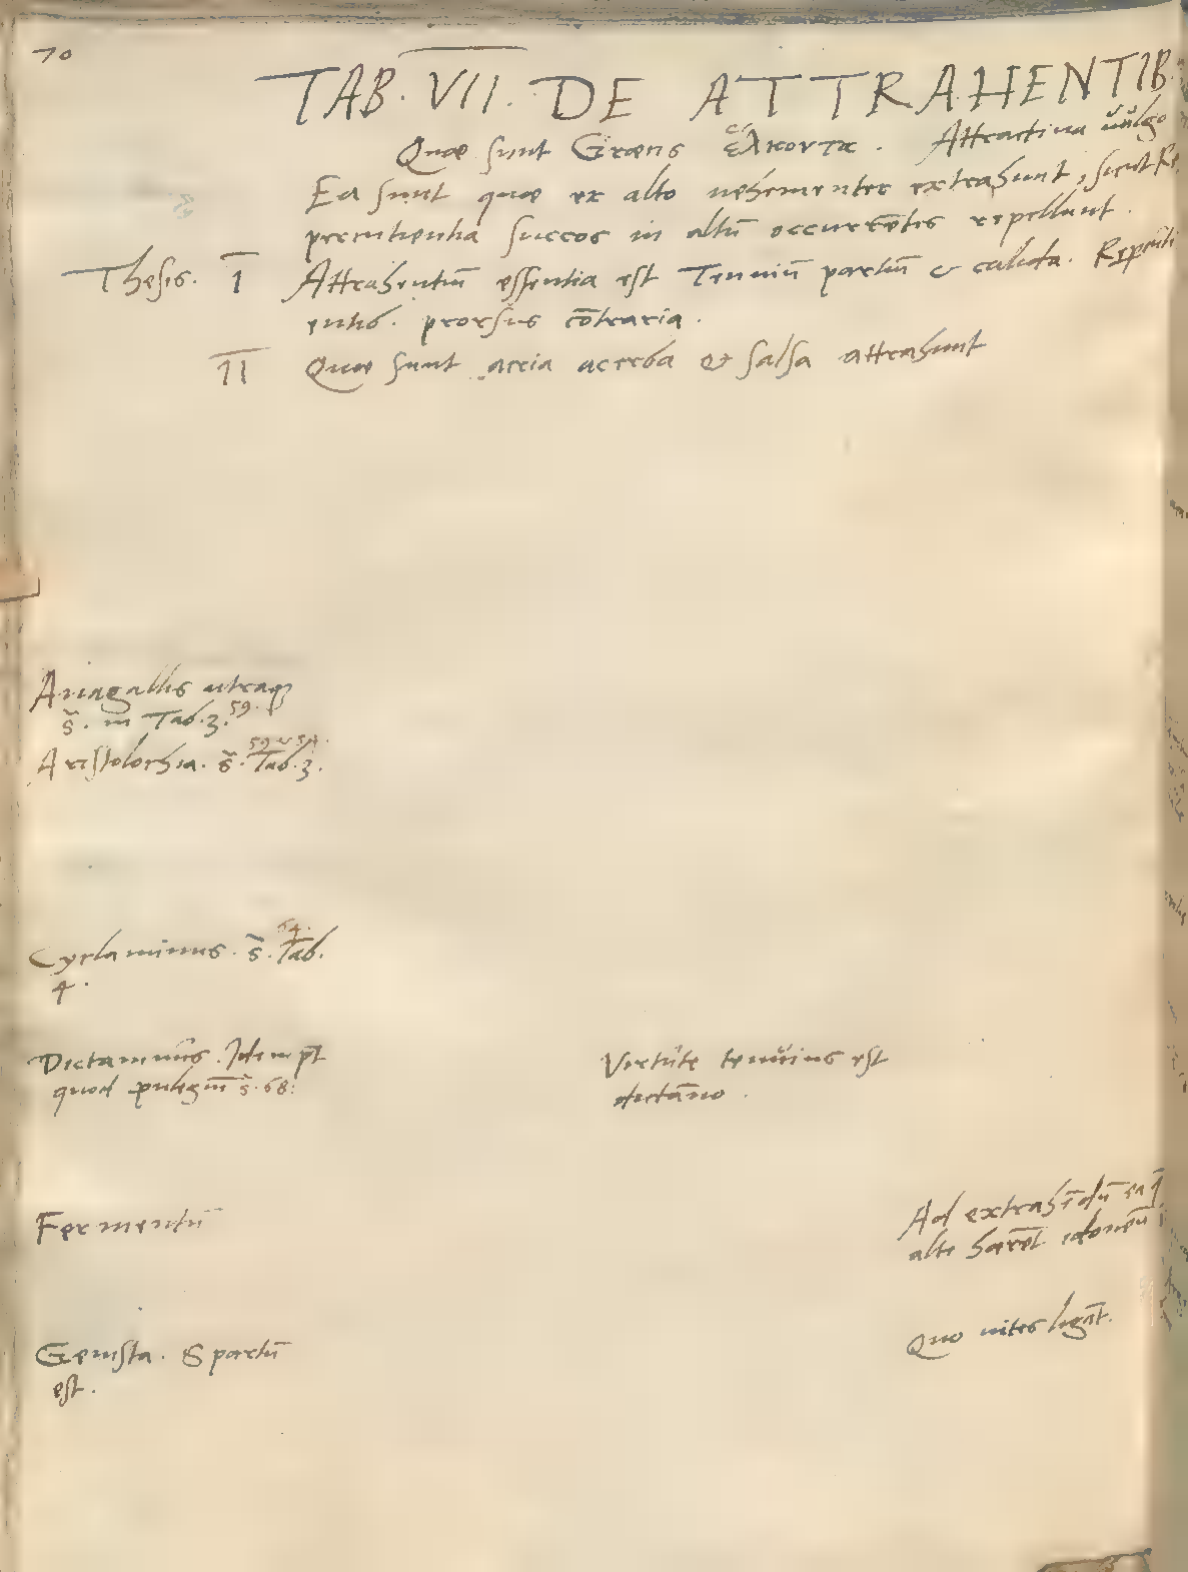 70
TAB. VII. DE ATTRAHENTIB.
Quæ sunt Græcis ἕλκοντα. Attractiua uulgo
Ea sunt quæ ex alto uehementer extrahunt, sicut Re
percutientia succos in altū occurrētes repellunt.
Thesis. I Attrahentiū essentia est Tenuiū partiū & calida. Reperuti
entib. prorsus cōtraria.
II Quæ sunt acria acerba & salsa attrahunt
Anagallis utraq
s̄. in Tab. 3. 59.
Aristolochia. s̄. Tab. 3.
Cyclaminus. s̄. Tab. 64.
4.
Dictamnus. Idem p̄t
quod pulegiū s̄. 68.
Virtute tenuius est
dictāno.
Fermentū
Ad extrahēdū ea q̄
alte hærēt idoneū
Genista. Spartū
est.
Quo uites ligāt.